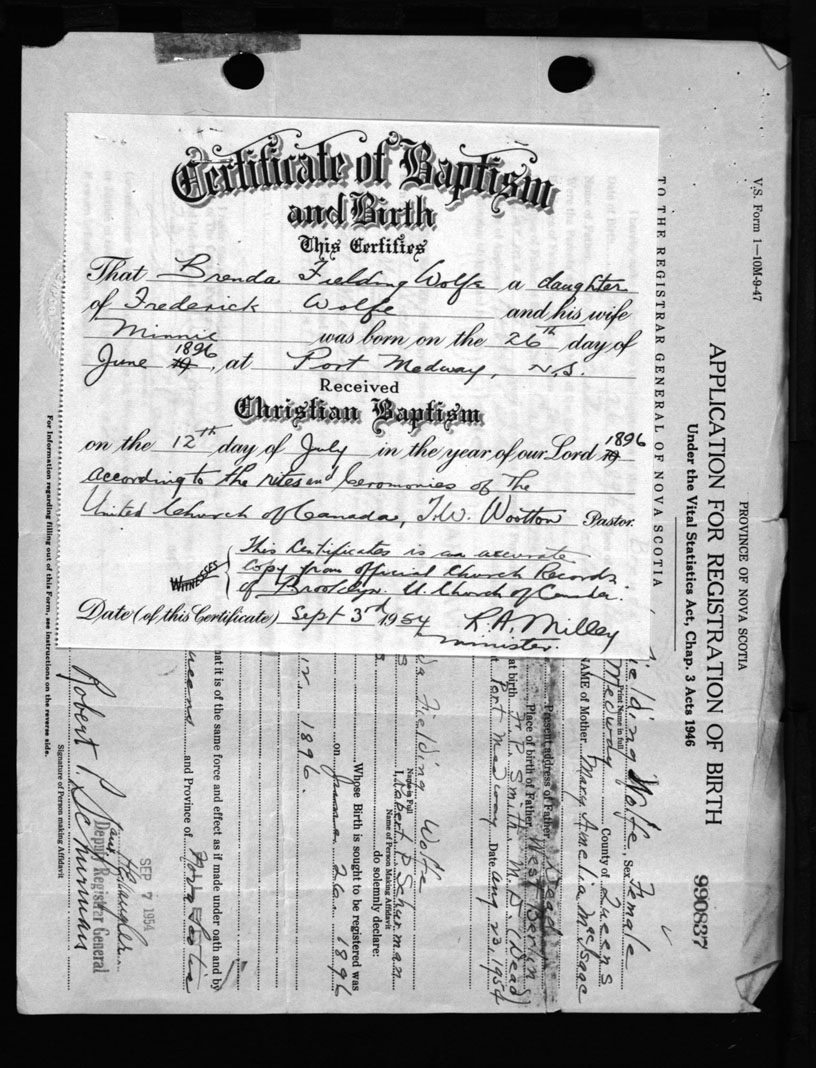 Certificate of Baptism
and Birth
This Certifies
That Brenda Fielding Wolfe a daughter
of Frederick Wolfe and his wife
Minnie was born on the 26th day of
June 1896 19, at Port Medway, N.S.
Received
Christian Baptism
on the 12th day of July in the year of our Lord 1896 19
according to the rites and Ceremonies of The
United Church of Canada, T.W. Wootton Pastor.
WITNESSES
This Certificates is an accurate
Copy from official Church Records
of Brooklyn U. Church of Canada.
Date (of this Certificate) Sept 3rd 1954 R.A. Milley
Minister.
V.S. Form 1—10M-9-47
PROVINCE OF NOVA SCOTIA
990837
APPLICATION FOR REGISTRATION OF BIRTH
Under the Vital Statistics Act, Chap. 3 Acts 1946
TO THE REGISTRAR GENERAL OF NOVA SCOTIA
Fielding Wolfe, Sex Female
Print Name in full
Medway County of Queens
NAME of Mother Mary Amelia MacIsaac
Present address of Father Dead
Place of birth of Father West Berlin
at birth H. P. Smith, M.D. (Dead)
Port Medway Date Aug 23, 1954
Fielding Wolfe
Name in Full
I, Robert P Schurman
Name of Person Making Affidavit
do solemnly declare:
Whose Birth is sought to be registered was
on June 26 1896
1896.
that it is of the same force and effect as if made under oath and by
Queens and Province of Nova Scotia
SEP 7 1954
Deputy Registrar General
Robert P. Schurman
Signature of Person making Affidavit
For Information regarding filling out of this Form, see instructions on the reverse side.